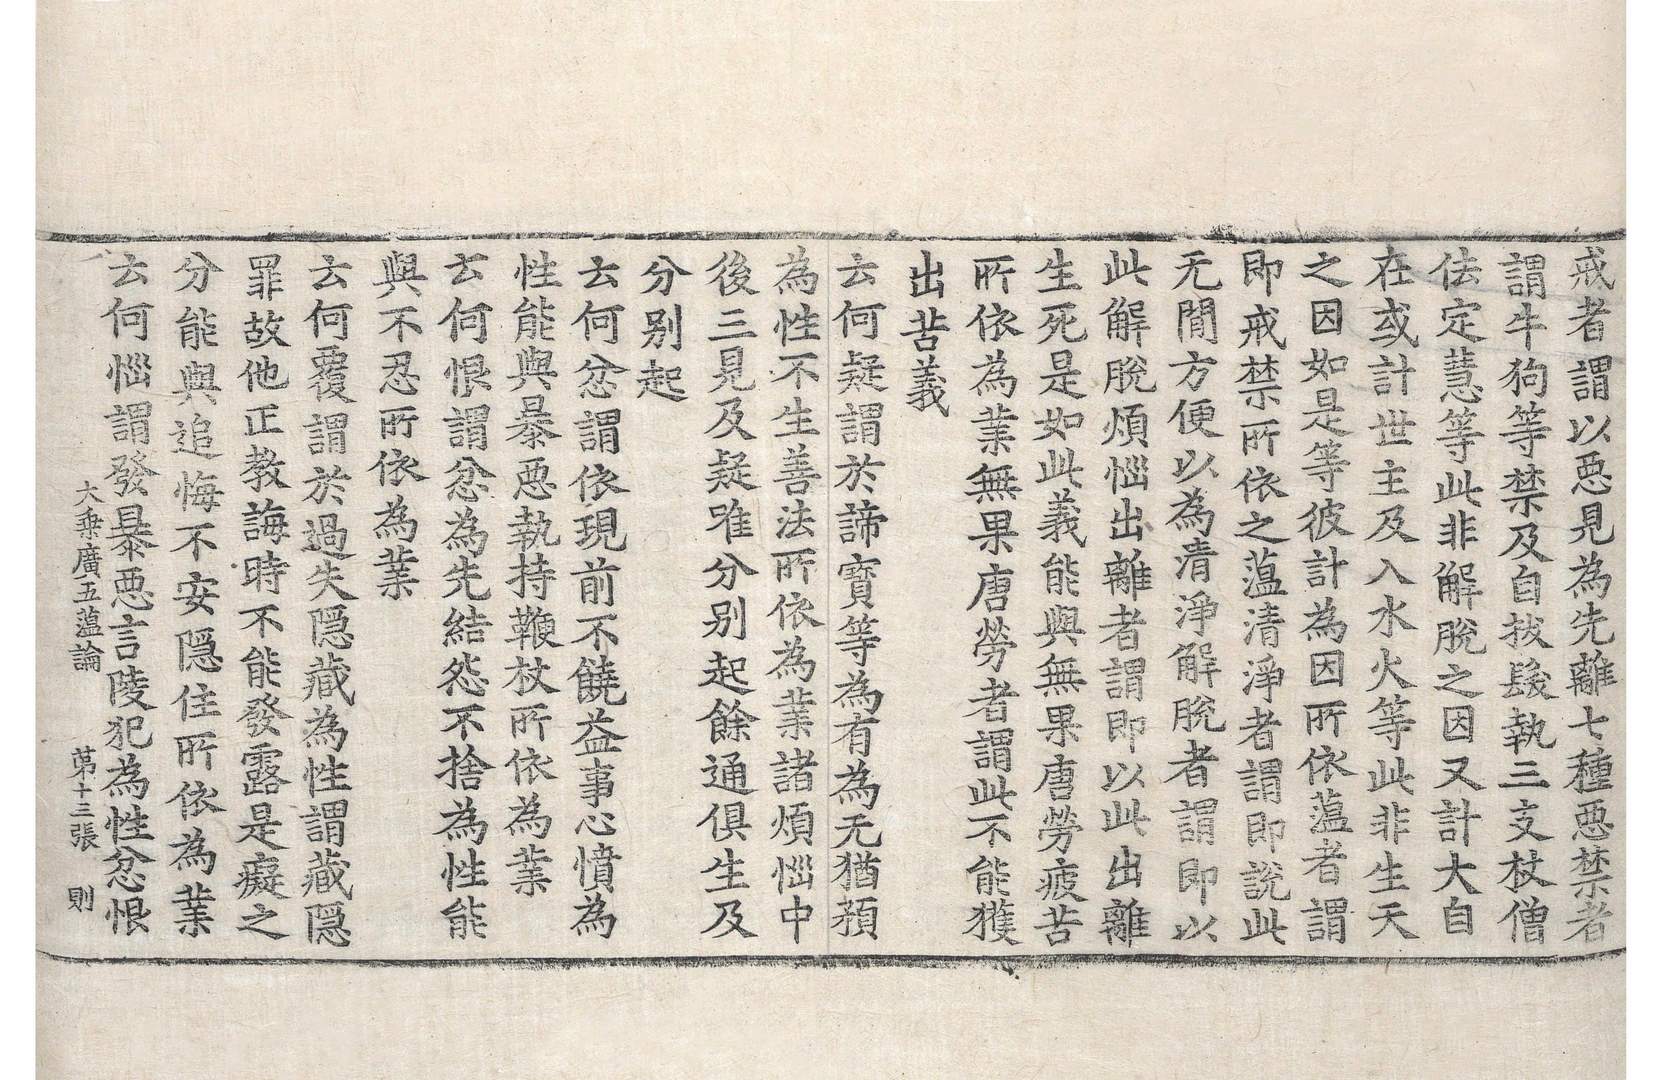 戒者謂以惡見為先離七種惡禁者
謂牛狗等禁及自拔髮執三支杖僧
佉定慧等此非解脫之因又計大自
在或計世主及入水火等此非生天
之因如是等彼計為因所依蕰者謂
即戒禁所依之蕰清淨者謂即說此
无閒方便以為清淨解脫者謂即以
此解脫煩惱出離者謂即以此出離
生死是如此義能與無果唐勞疲苦
所依為業無果唐勞者謂此不能獲
出苦義
云何疑謂於諦寶等為有為无猶預
為性不生善法所依為業諸煩惱中
後三見及疑唯分別起餘通俱生及
分別起
云何忿謂依現前不饒益事心憤為
性能與暴惡執持鞭杖所依為業
云何恨謂忿為先結怨不捨為性能
與不忍所依為業
云何覆謂於過失隱藏為性謂藏隱
罪故他正教誨時不能發露是癡之
分能與追悔不安隱住所依為業
云何惱謂發暴惡言陵犯為性忿恨
大乘廣五蕰論 苐十三張 則